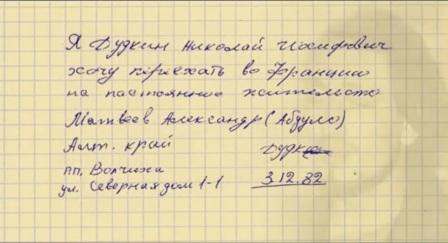 Я Дудкин Николай Иосифович
хочу приехать во Францию
на постоянное жительство
Матвеев Александр (Абдуло)
Алт. край Дудкин
пп. Волчиха
ул. Северная дом 1-1 3.12.82